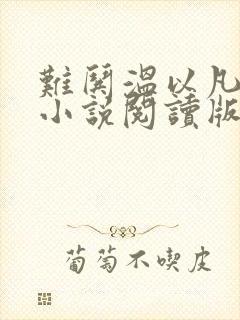 難鬨溫以凡
小說閱讀版
葡萄不喫皮